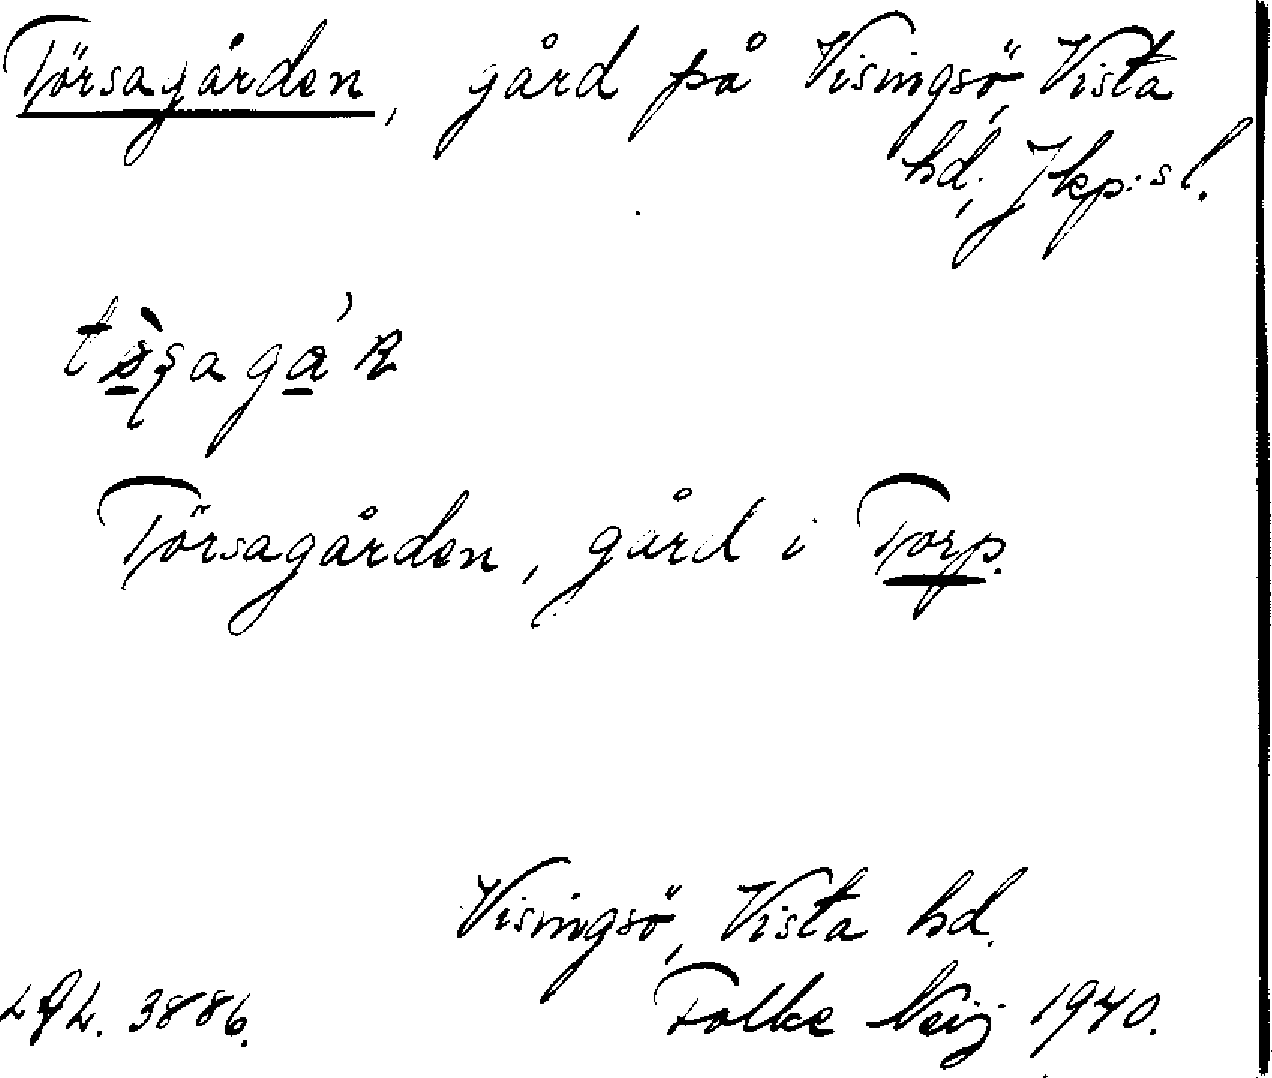 Törsagården, gård på Visingsö, Vista
hd, Jkp:s l.
Törsagården, gård i Torp.
Visingsö, Vista hd.
Folke Neij 1940.
3886.